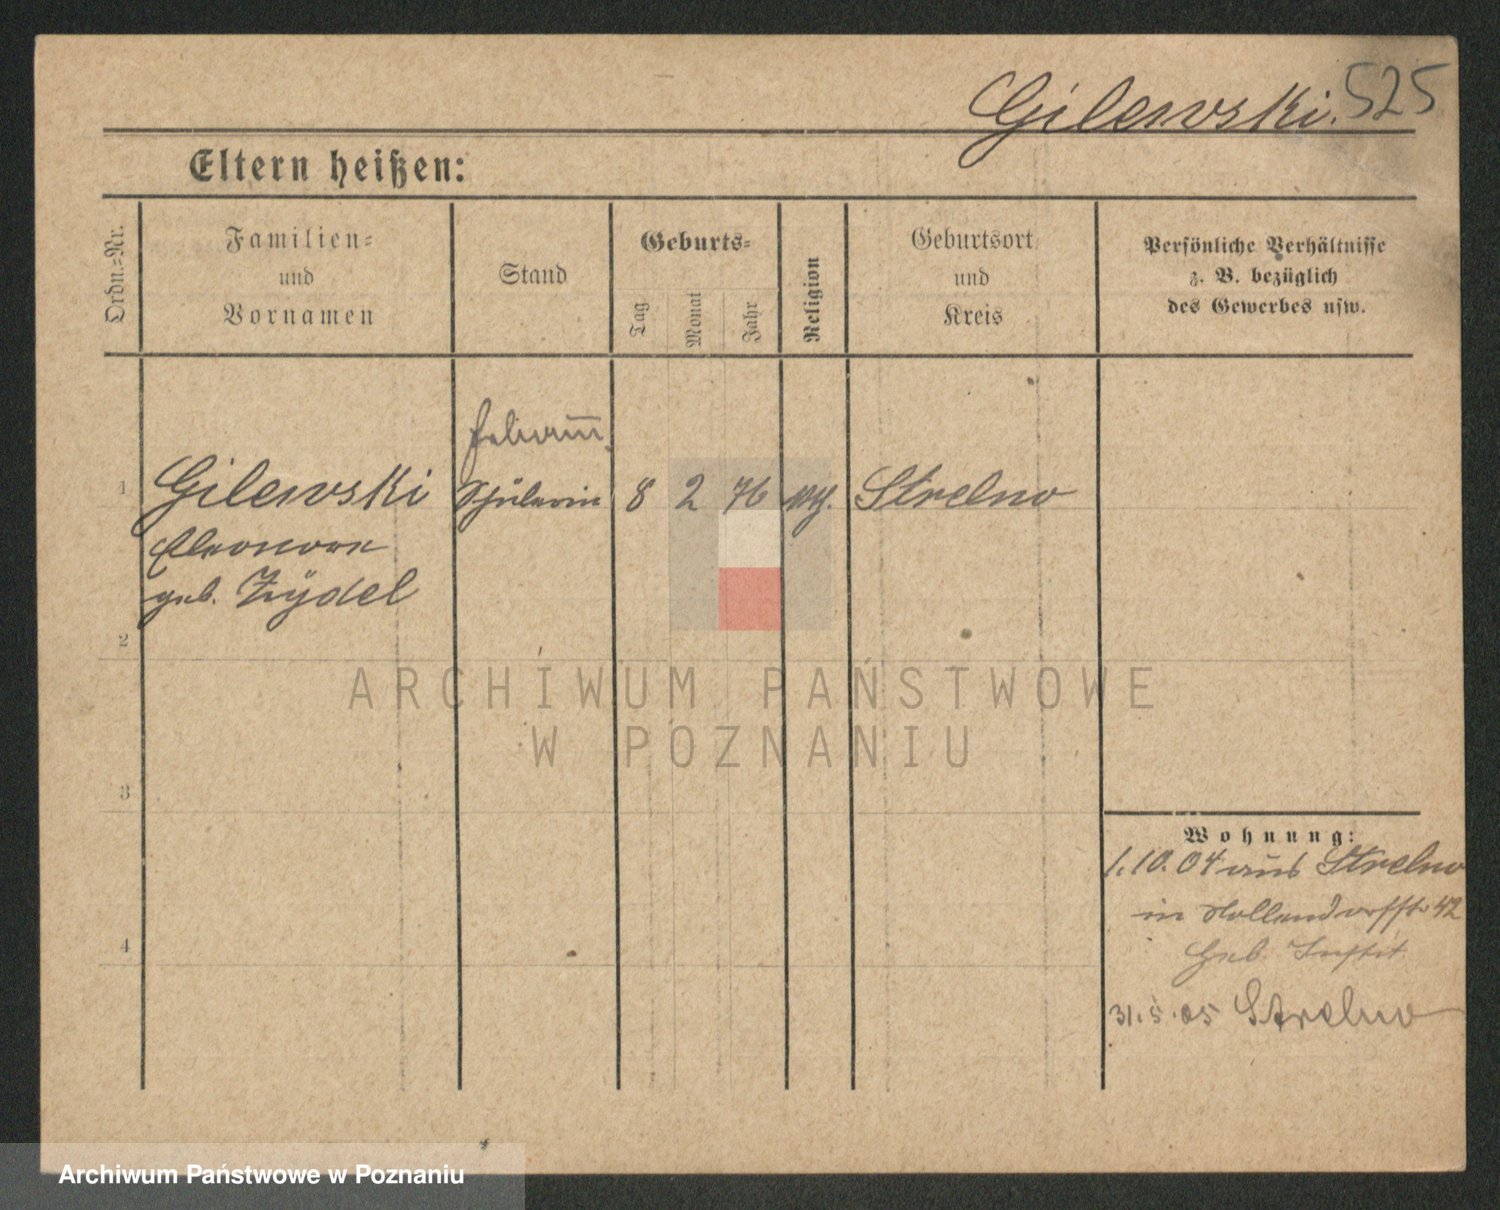 Gilewski. 525
Eltern heißen:
Ordn.=Nr.
Familien=
und
Vornamen
Stand
Geburts=
Tag
Monat
Jahr
Religion
Geburtsort
und
Kreis
Persönliche Verhältnisse
z. B. bezüglich
des Gewerbes usw.
1 Gilewski Schülerin 8 2 76 Strelno
Eleonore
geb. Zÿdel
2
3
4
Wohnung:
1.10.04 aus Strelno
in Nollendorfstr 42
Geb. Instit
31.5.05 Strelno
ARCHIWUM PAŃSTWOWE
W POZNANIU
Archiwum Państwowe w Poznaniu